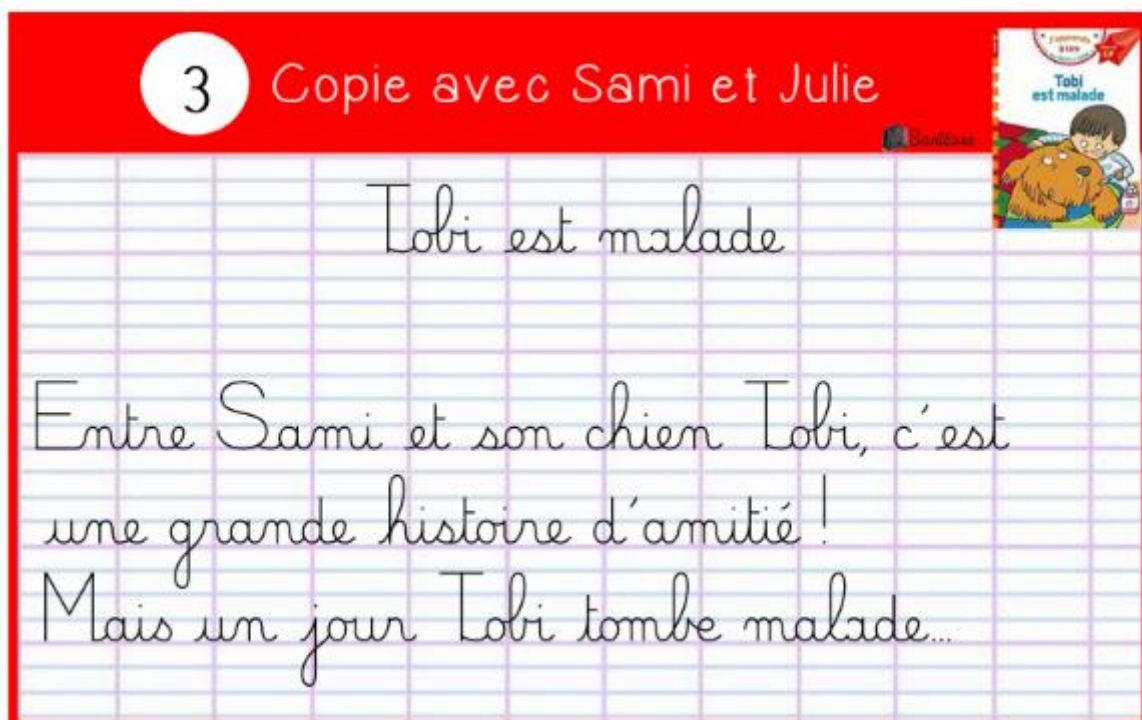 3 Copie avec Sami et Julie
J'apprends
à lire
Tobi
est malade
Tobi est malade
Entre Sami et son chien Tobi, c'est
une grande histoire d'amitié !
Mais un jour Tobi tombe malade...